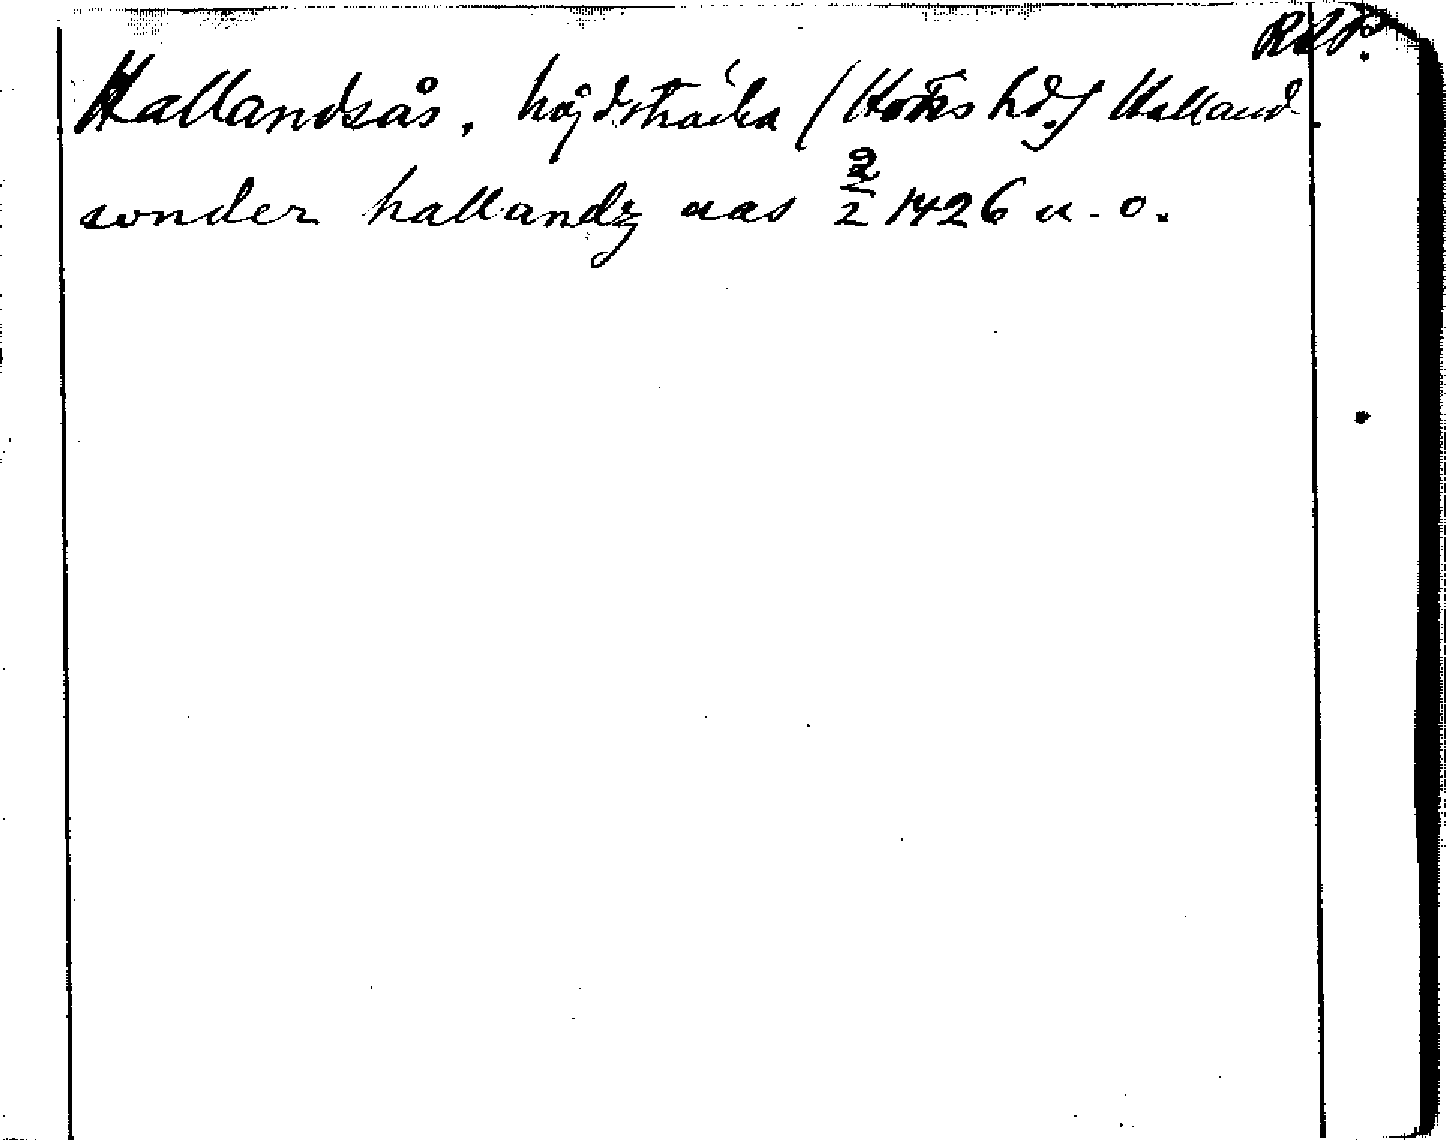 RAP.
Hallandsås, höjdsträcka (Höks hd.) Halland.
sonder hallandz aas 2/2 1426 u. o.